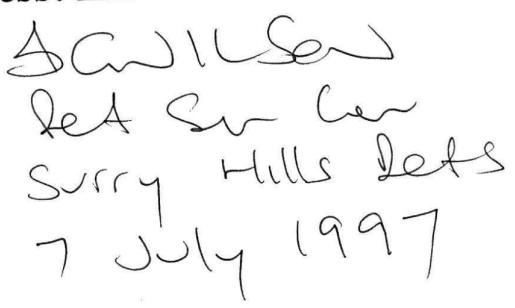 A G WILSON
Det Sen Con
Surry Hills Dets
7 July 1997